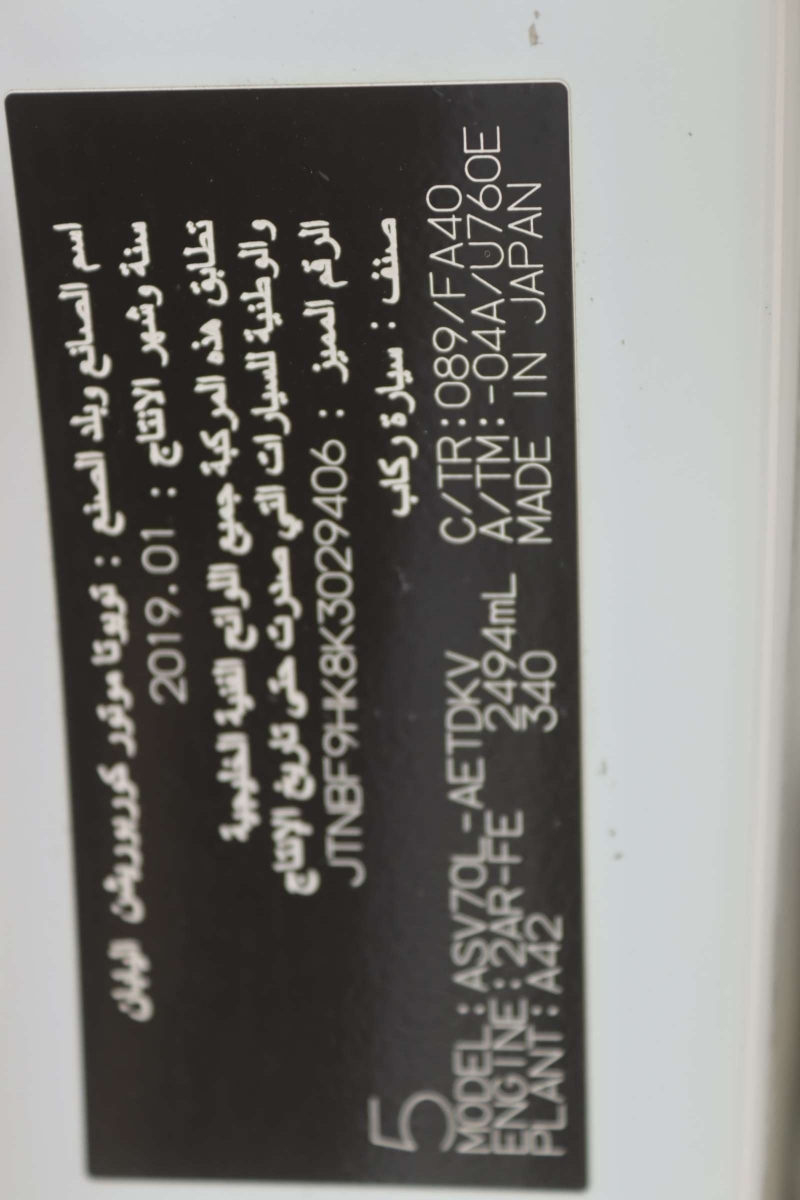 اسم الصانع وبلد الصنع : تويوتا موتور كوربوريشن اليابان
سنة وشهر الانتاج : 2019.01
تطابق هذه المركبة جميع اللوائح الفنية الخليجية
والوطنية للسيارات التي صدرت حتى تاريخ الانتاج
الرقم المميز : JTNBF9HK8K3029406
صنف : سيارة ركاب
5
MODEL : ASV70L-AETDKV C/TR:089/FA40
ENGINE : 2AR-FE 2494mL A/TM:-04A/U760E
PLANT : A42 340 MADE IN JAPAN